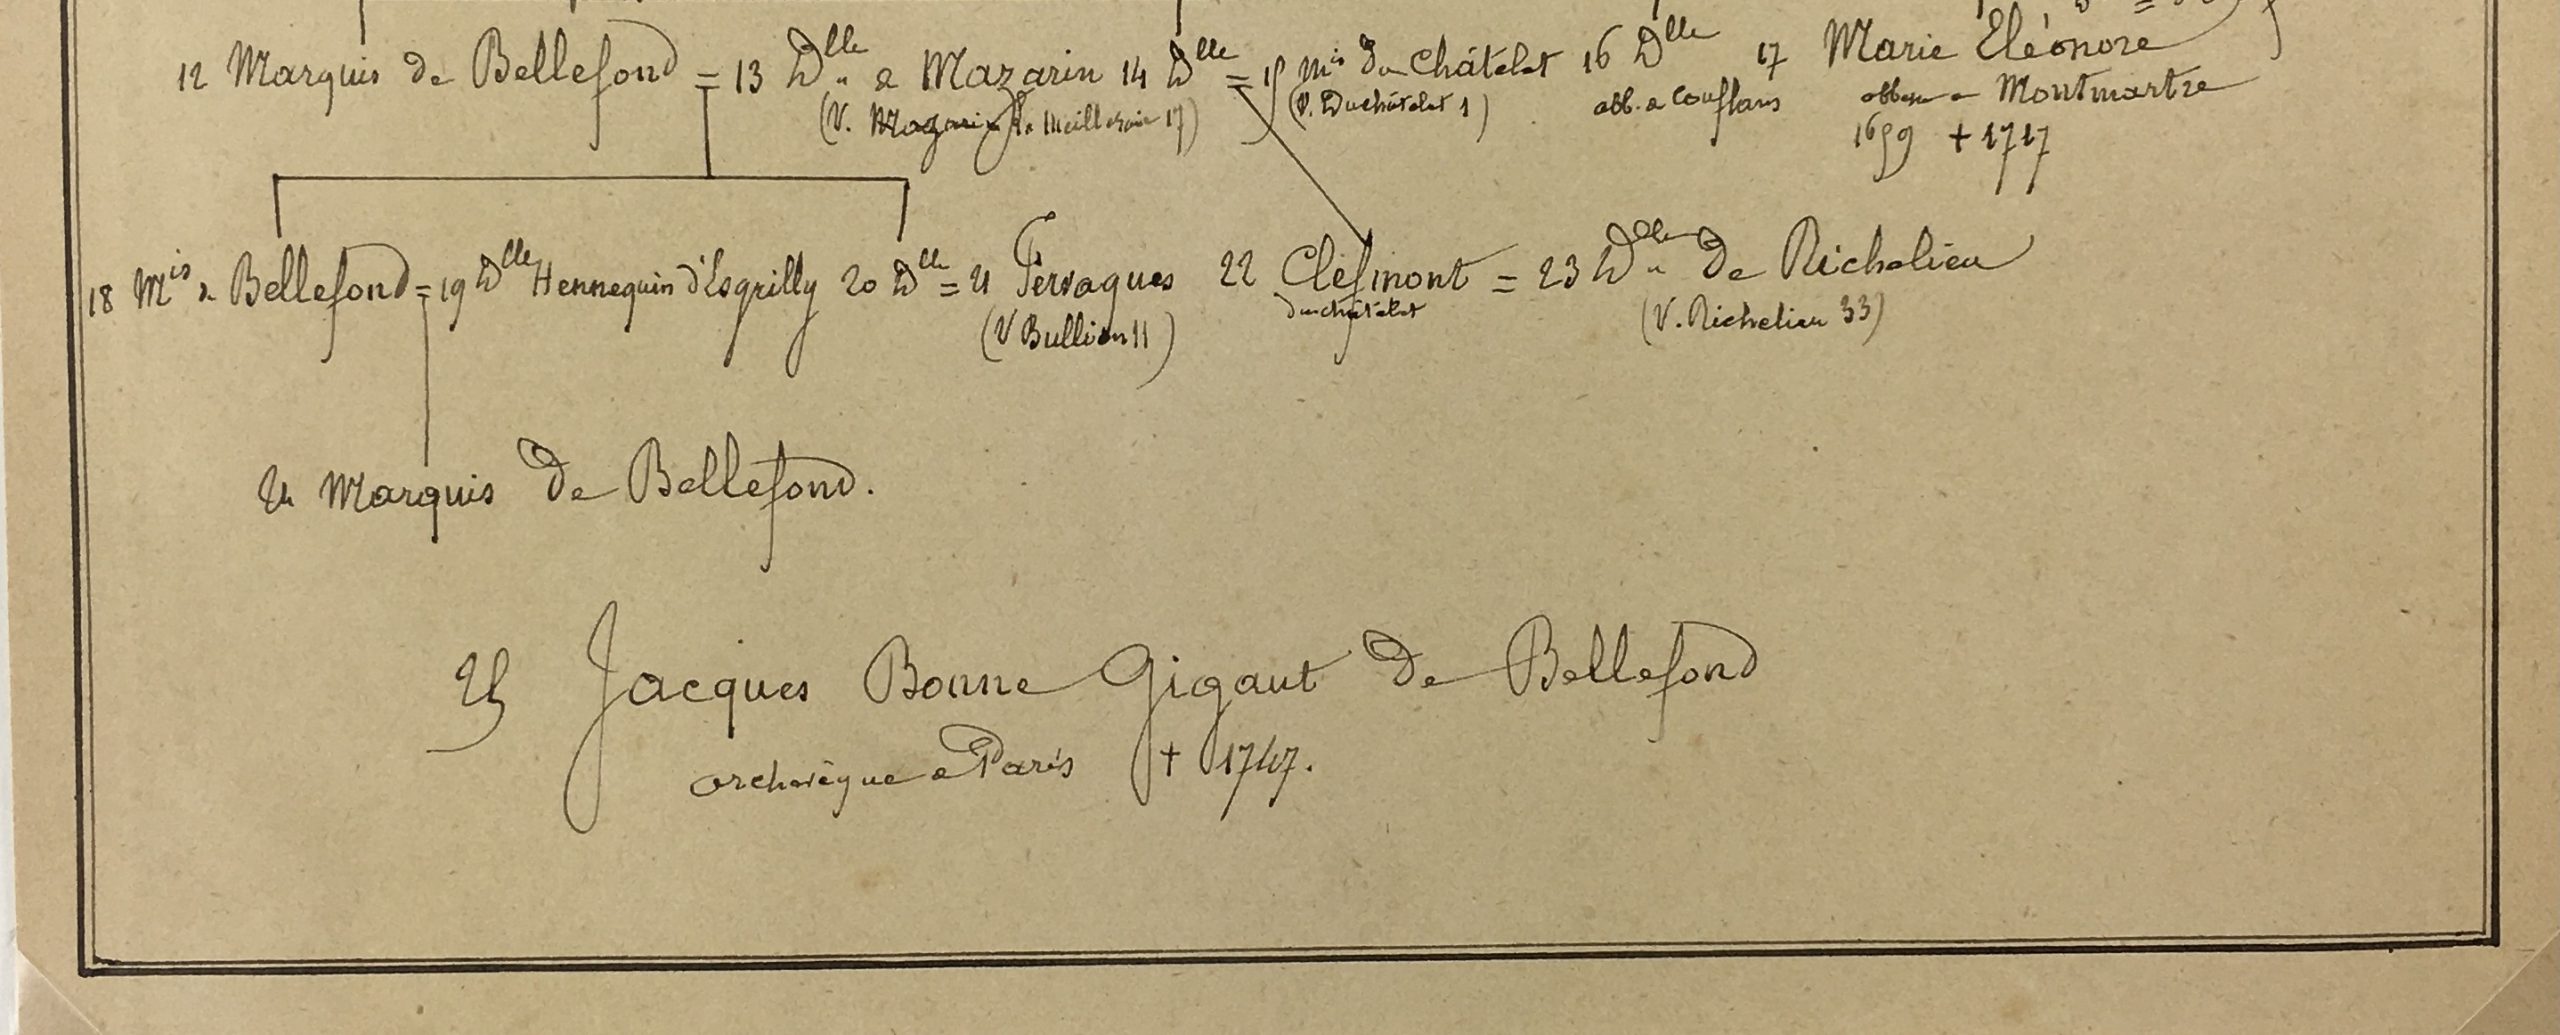 12 Marquis de Bellefond = 13 Dlle de Mazarin 14 Dlle = 15 Mis du Châtelet 16 Dlle 17 Marie Eléonore
(V. Mazarin la Meilleraie 17) (V. Duchâtelet 1) abb. de Conflans abbesse de Montmartre
1699 + 1717
18 Mis de Bellefond = 19 Dlle Hennequin d'Esqrilly 20 Dlle = 21 Fervaques 22 Clefmont = 23 Dlle de Richelieu
(V Bullion 11) duchâtelet (V. Richelieu 33)
24 Marquis de Bellefond.
25 Jacques Bonne Gigaut de Bellefond
archevêque de Paris + 1747.